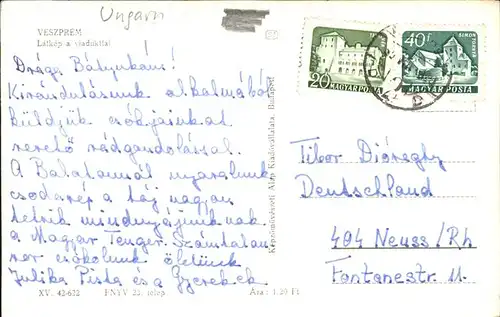 Ungarn
VESZPRÉM
Látkép a viadukttal
Drága Bátyuskám!
Kirándulásunk alkalmából
küldjük csókjainkat
szerető rádgondolással.
A Balatonnál nyaralunk
csodaszép a táj nagyon
tetszik mindnyájunknak
a Magyar Tenger. Számtalan
szor csókolunk ölelünk
Julika Pista és a Gyerekek
XV. 42-622
Ára: 1.20 Ft
Képzőművészeti Alap Kiadóvállalata, Budapest
20
MAGYAR POSTA
40f
SIMON
MAGYAR POSTA
Tibor Dióreghy
Deutschland
404 Neuss/Rh
Fontanestr 11.